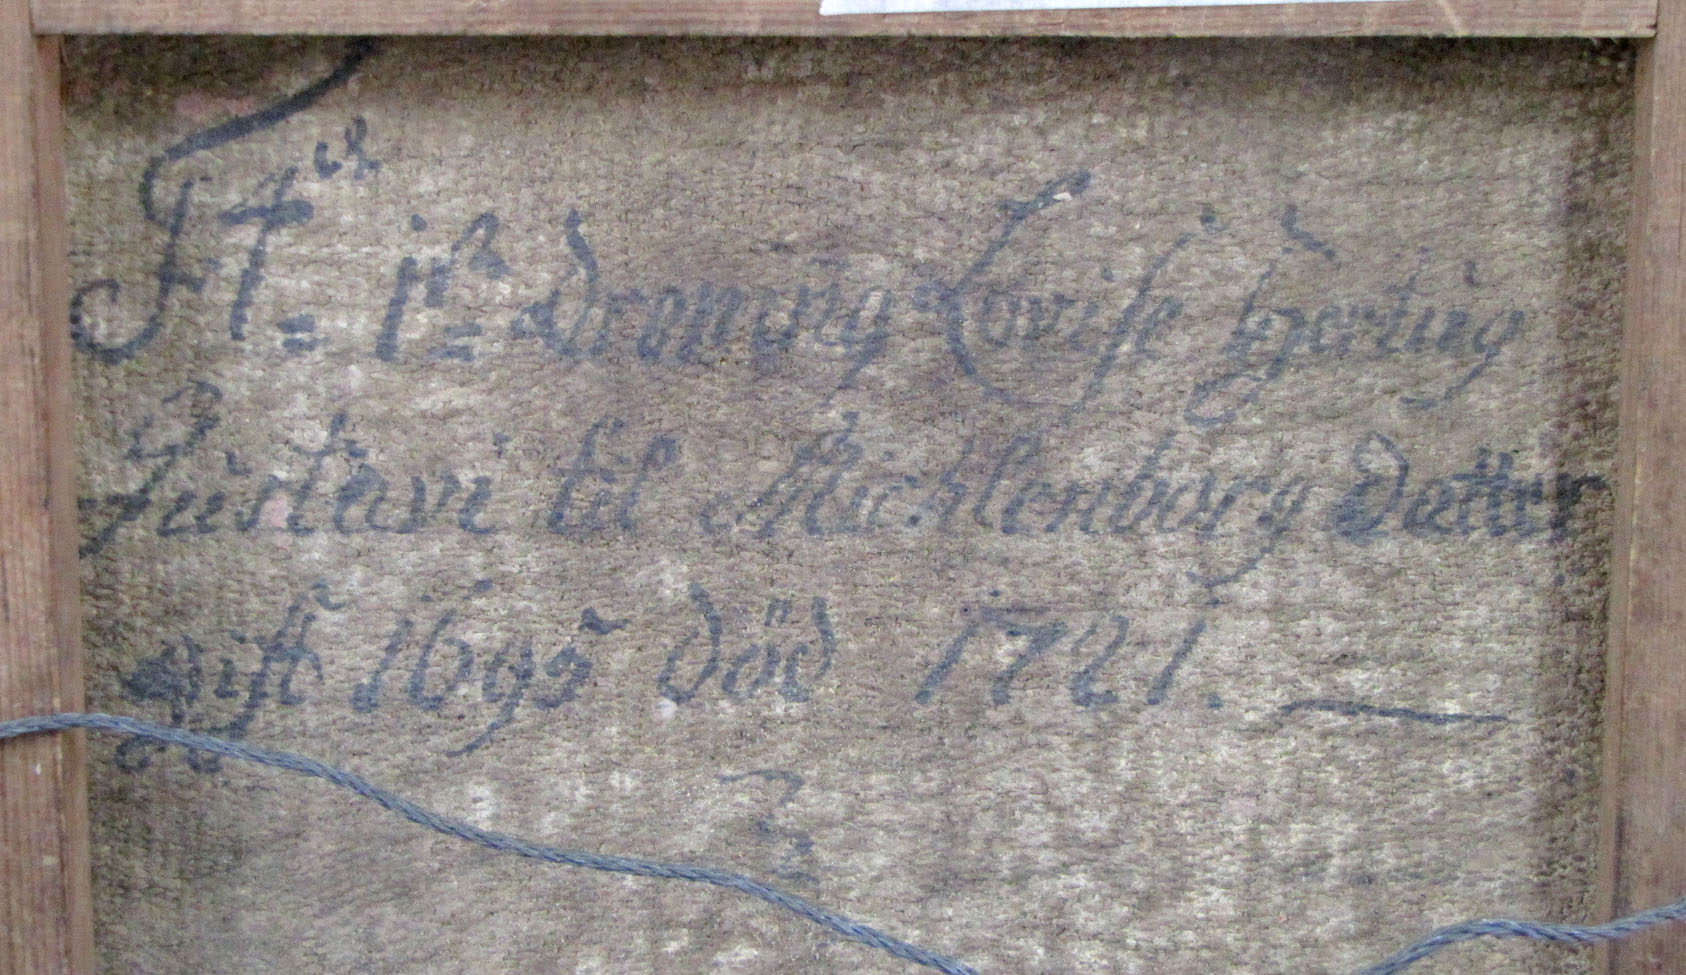 F 4es 1ste Dronning Lovise Hertug
Gustavi til Michlenborg Datter
gift 1695 död 1721.